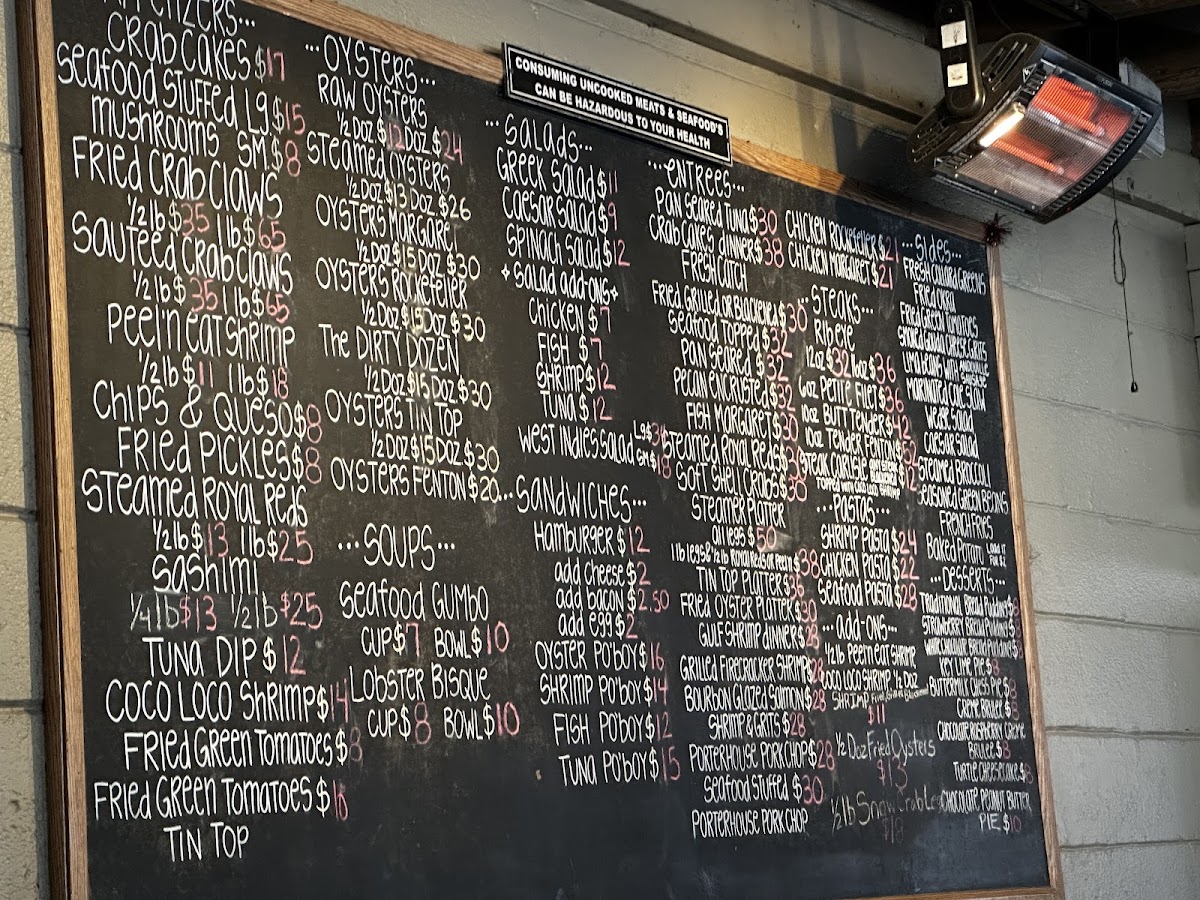 APPETIZERS...
CRAB CAKES $17
SEAFOOD STUFFED LG $15
MUSHROOMS SM. $8
FRIED CRAB CLAWS
1/2 lb $35 1 lb $65
SAUTEED CRAB CLAWS
1/2 lb $35 1 lb $65
PEEL'N EAT SHRIMP
1/2 lb $11 1 lb $18
CHIPS & QUESO $8
FRIED PICKLES $8
STEAMED ROYAL REDS
1/2 lb $13 1 lb $25
SASHIMI
1/4 lb $13 1/2 lb $25
TUNA DIP $12
COCO LOCO SHRIMP $14
FRIED GREEN TOMATOES $8
FRIED GREEN TOMATOES $18
TIN TOP
...OYSTERS...
RAW OYSTERS
1/2 DOZ $12 DOZ $24
STEAMED OYSTERS
1/2 DOZ $13 DOZ $26
OYSTERS MORGARET
1/2 DOZ $15 DOZ $30
OYSTERS ROCKEFELLER
1/2 DOZ $15 DOZ $30
THE DIRTY DOZEN
1/2 DOZ $15 DOZ $30
OYSTERS TIN TOP
1/2 DOZ $15 DOZ $30
OYSTERS FENTON $20
...SOUPS...
SEAFOOD GUMBO
CUP $7 BOWL $10
LOBSTER BISQUE
CUP $8 BOWL $10
CONSUMING UNCOOKED MEATS & SEAFOOD'S
CAN BE HAZARDOUS TO YOUR HEALTH
...SALADS...
GREEK SALAD $11
CAESAR SALAD $9
SPINACH SALAD $12
+ SALAD ADD-ONS +
CHICKEN $7
FISH $7
SHRIMP $12
TUNA $12
WEST INDIES SALAD LG $
SM $18
...SANDWICHES...
HAMBURGER $12
ADD CHEESE $2
ADD BACON $2.50
ADD EGG $2
OYSTER PO'BOY $16
SHRIMP PO'BOY $14
FISH PO'BOY $12
TUNA PO'BOY $15
...ENTREES...
PAN SEARED TUNA $30
CRAB CAKES DINNER $38
FRESH CATCH
FRIED, GRILLED OR BLACKENED $30
SEAFOOD TOPPED $32
PAN SEARED $32
PECAN ENCRUSTED $32
FISH MARGARET $30
STEAMED ROYAL REDS
SOFT SHELL CRABS $30
STEAMER PLATTER
ALL LEGS $50
1 lb LEGS & 1/2 lb ROYAL REDS OR PEEL N $38
TIN TOP PLATTER $36
FRIED OYSTER PLATTER $30
GULF SHRIMP DINNER $28
GRILLED FIRECRACKER SHRIMP $28
BOURBON GLAZED SALMON $28
SHRIMP & GRITS $28
PORTERHOUSE PORK CHOP $28
SEAFOOD STUFFED $30
PORTERHOUSE PORK CHOP
CHICKEN ROCKEFELLER $21
CHICKEN MARGARET $21
...STEAKS...
RIBEYE
12oz $32 16oz $36
6oz PETITE FILET $36
10oz BUTT TENDER $42
10oz TENDER FENTON $52
STEAK CARLISLE
TOPPED WITH COCO LOCO SHRIMP
...PASTAS...
SHRIMP PASTA $24
CHICKEN PASTA $22
SEAFOOD PASTA $28
...ADD-ONS...
1/2 lb PEEL'N EAT SHRIMP
COCO LOCO SHRIMP 1/2 DOZ
SHRIMP
$11
1/2 Doz Fried Oysters
$13
1/2 lb Snow Crab Legs
$18
...SIDES...
FRESH COLLARD GREENS
FRIED OKRA
FRIED GREEN TOMATOES
SMOKED GOUDA CHEESE GRITS
LIMA BEANS WITH ANDOUILLE
SAUSAGE
MARINATED COLE SLAW
WEDGE SALAD
CAESAR SALAD
STEAMED BROCCOLI
SEASONED GREEN BEANS
FRENCH FRIES
BAKED POTATO LOAD IT
FOR $2
...DESSERTS...
TRADITIONAL BREAD PUDDING $8
STRAWBERRY BREAD PUDDING $8
WHITE CHOCOLATE BREAD PUDDING $8
KEY LIME PIE $8
BUTTERMILK CHESS PIE $8
CREME BRULEE $8
CHOCOLATE RASPBERRY CREME
BRULEE $8
TURTLE CHEESECAKE $8
CHOCOLATE PEANUT BUTTER
PIE $10